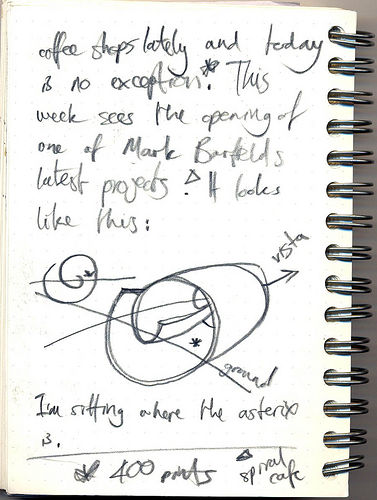 coffee shops lately and today
is no exception*. This
week sees the opening of
one of Mark Barfield's
latest projects △. It looks
like this:
vista
*
*
ground
I'm sitting where the asterix
is.
* 400 prints △ spiral cafe